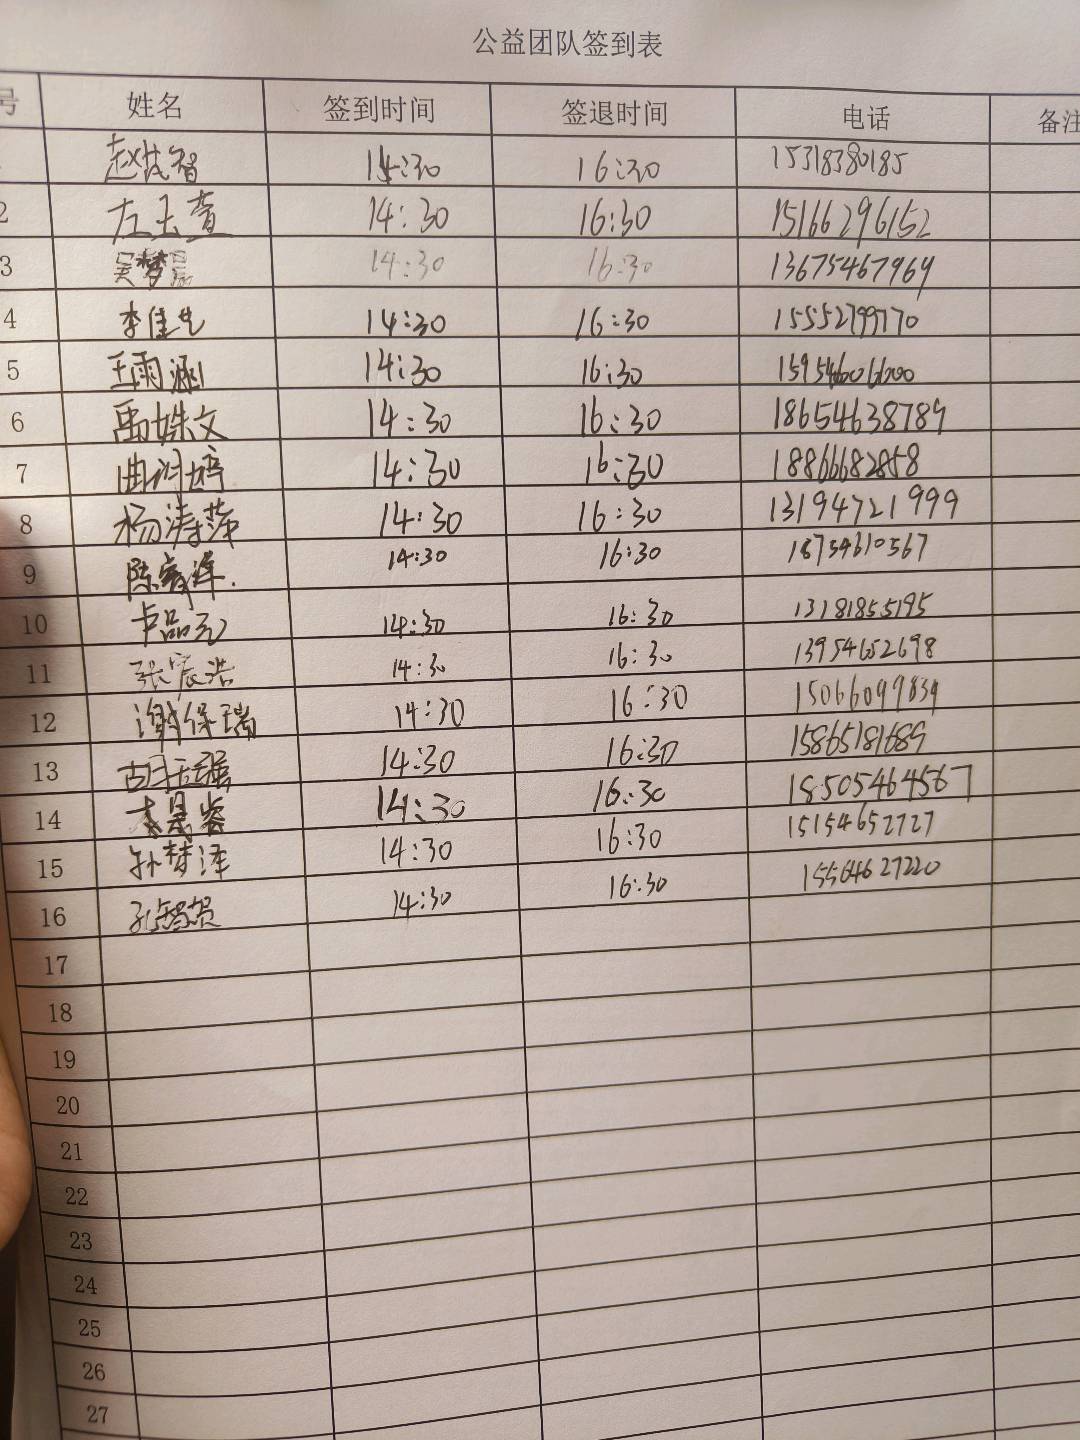 公益团队签到表
号 姓名 签到时间 签退时间 电话 备注
赵茂智 14:30 16:30 15318380185
2 左玉 14:30 16:30 15166296152
3 吴梦 14:30 16:30 13675467969
4 李佳 14:30 16:30 15552799770
5 王雨涵 14:30 16:30
6 禹姝文 14:30 16:30 18654638789
7 曲 14:30 16:30 18866682858
8 杨涛萍 14:30 16:30 13194721999
9 陈 14:30 16:30 18754610567
10 卢品 14:30 16:30 13181855195
11 张宸浩 14:30 16:30 13954652698
12 谢保瑞 14:30 16:30 15066099839
13 胡 14:30 16:30 15865181689
14 14:30 16:30 18505464567
15 孙梦泽 14:30 16:30 15154652727
16 孔智贺 14:30 16:30 15564627220
17
18
19
20
21
22
23
24
25
26
27